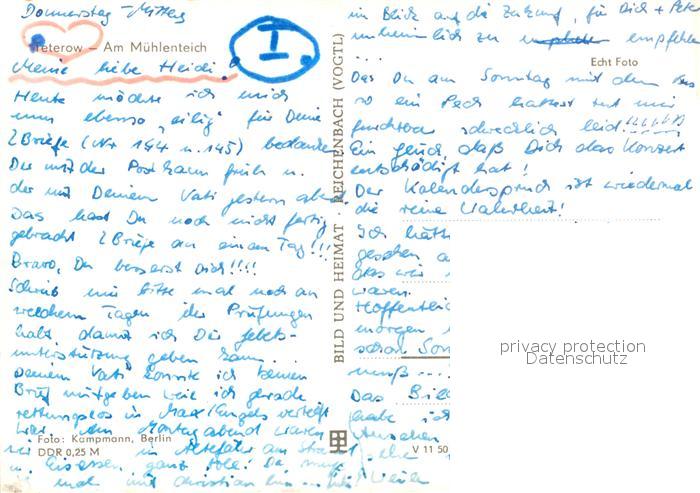 Donnerstag - Mittag
Teterow – Am Mühlenteich
I.
Meine liebe Heidi!
Heute möchte ich mich
nun ebenso „eilig" für Deine
2 Briefe (Nr 144 u. 145) bedanken
Der mit der Post kam früh u.
der mit Deinem Vati gestern
Das hast Du noch nicht fertig
gebracht 2 Briefe an einem Tag!!!
Bravo, Du besserst Dich!!!!
Schreib mir bitte mal noch an
welchem Tagen die Prüfungen
habt, damit ich Dir
unterstützung geben kann.
Deinem Vati konnte ich keinen
Brief mitgeben weil ich gerade
rettungslos in Marx/Engels vertieft
war. Am Montagabend waren
wir in Altefähr am
u. Eisessen, ganz toll! Da
mal mit Christian
Foto: Kampmann, Berlin
DDR 0,25 M
BILD UND HEIMAT · REICHENBACH (VOGTL)
im Blick auf die Zukunft, für Dich + Peter
zu empfehlen
...
Echt Foto
Das Du am Sonntag mit dem
so ein Pech hattest tut mir
furchtbar schrecklich leid!!!!!!!
Ein glück daß Dich das Konzert
entschädigt hat!
Der Kalenderspruch ist wiedermal
die reine Wahrheit!
Ich hätt
gesehen
waren.
Hoffentlic
morgen
schon Son
muß ...
Das Bil
habe ich
Ansehen
V 11 50
privacy protection
Datenschutz